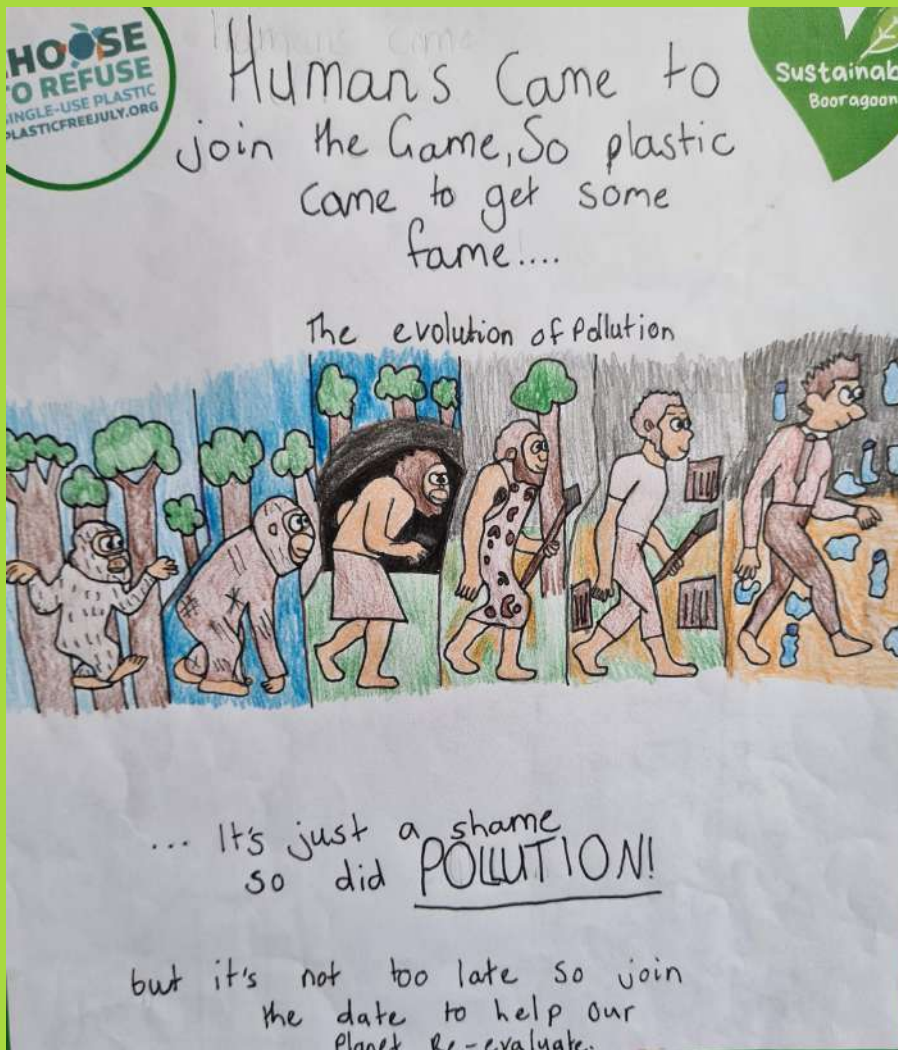 HOOSE
TO REFUSE
SINGLE-USE PLASTIC
PLASTICFREEJULY.ORG
Sustainab
Booragoon
Humans came
Humans Came to
join the Game, So plastic
came to get some
fame....
The evolution of Pollution
... It's just a shame
so did POLLUTION!
but it's not too late so join
the date to help our
Planet Re-evaluate.